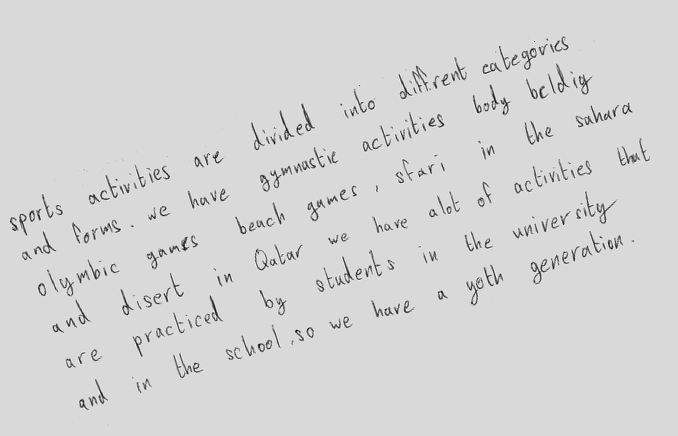 sports activities are divided into diffrent categories
and forms. we have gymnastic activities body beldig
olymbic games beach games, sfari in the sahara
and disert in Qatar we have alot of activities that
are practiced by students in the university
and in the school, so we have a yoth generation.